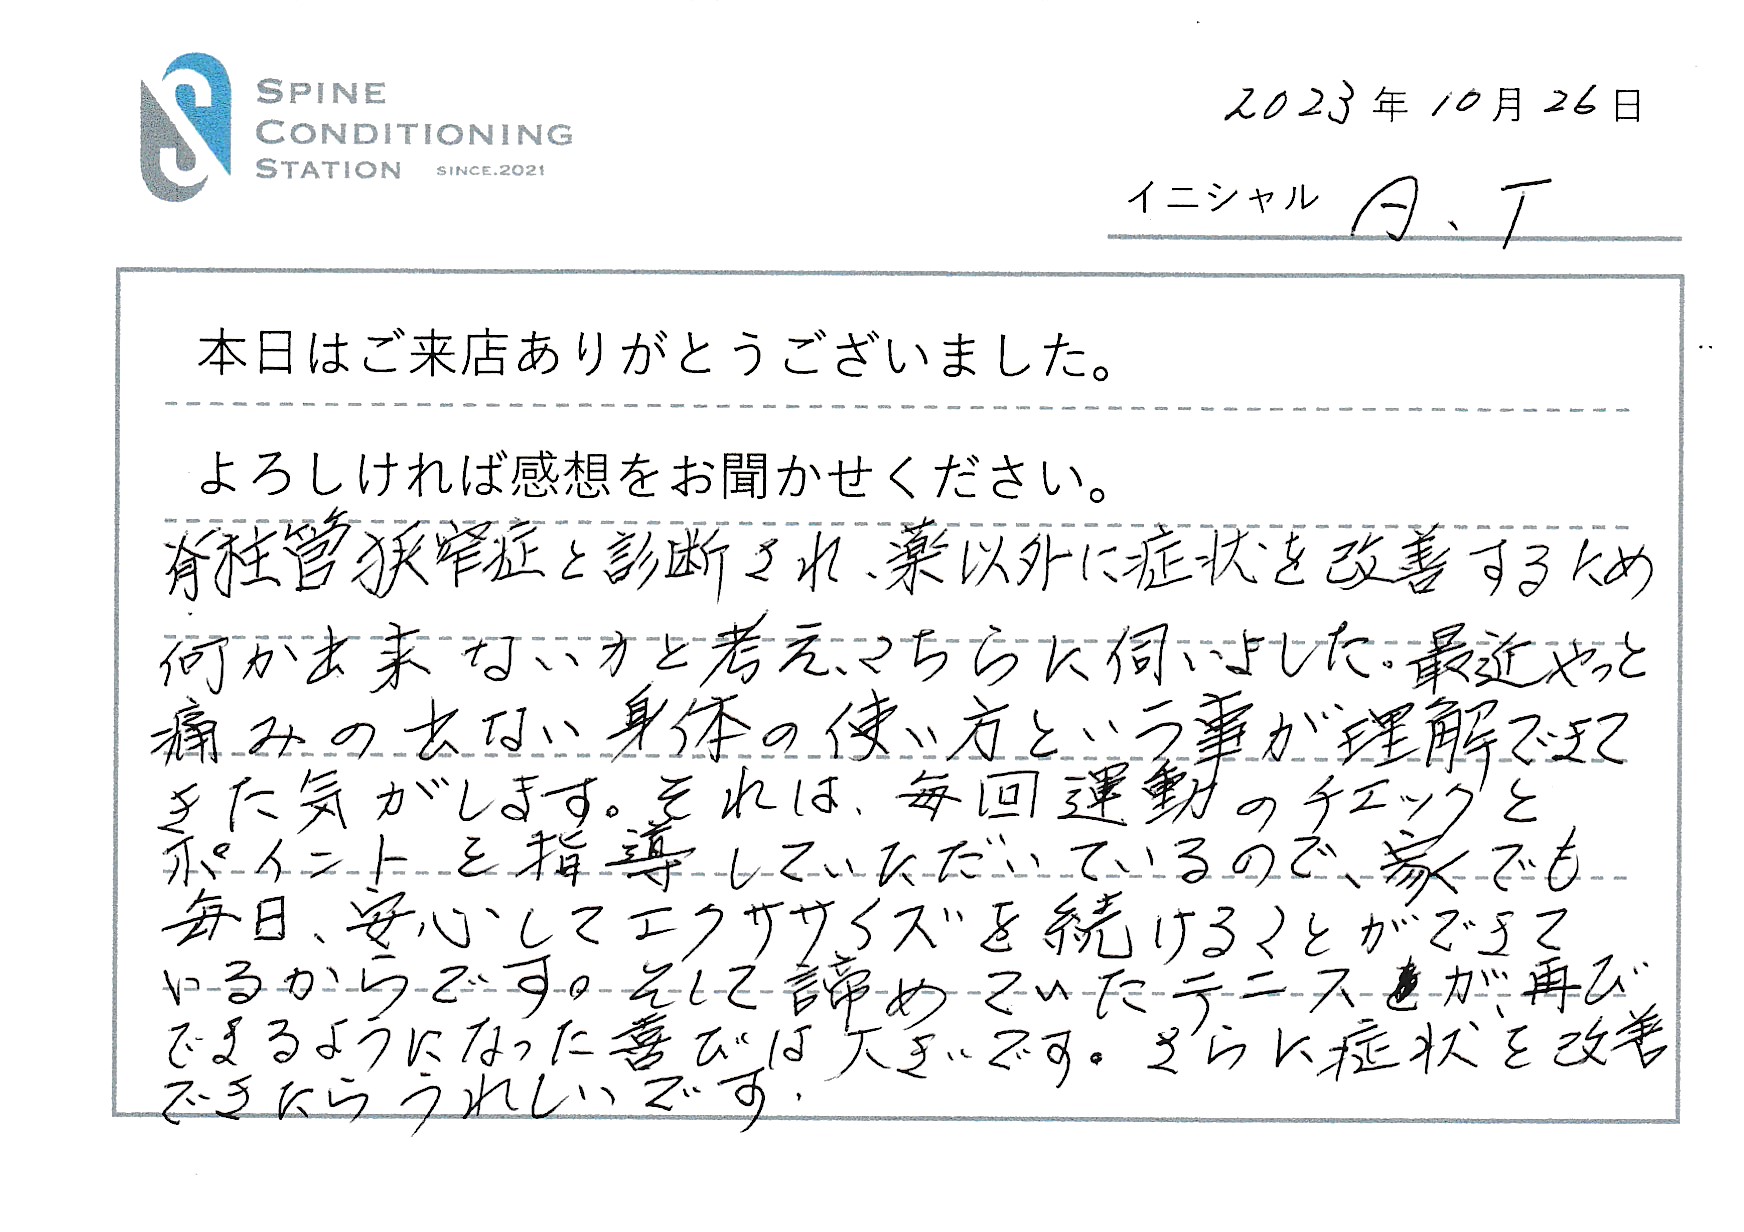 SPINE
CONDITIONING
STATION SINCE.2021
2023年10月26日
イニシャル A.T
本日はご来店ありがとうございました。
よろしければ感想をお聞かせください。
脊柱管狭窄症と診断され、薬以外に症状を改善するため
何か出来ないかと考え、こちらに伺いました。最近やっと
痛みの出ない身体の使い方という事が理解できて
きた気がします。それは、毎回運動のチェックと
ポイントを指導していただいているので、家でも
毎日、安心してエクササイズを続けることができて
いるからです。そして諦めていたテニスが、再び
できるようになった喜びは大きいです。さらに症状を改善
できたらうれしいです.